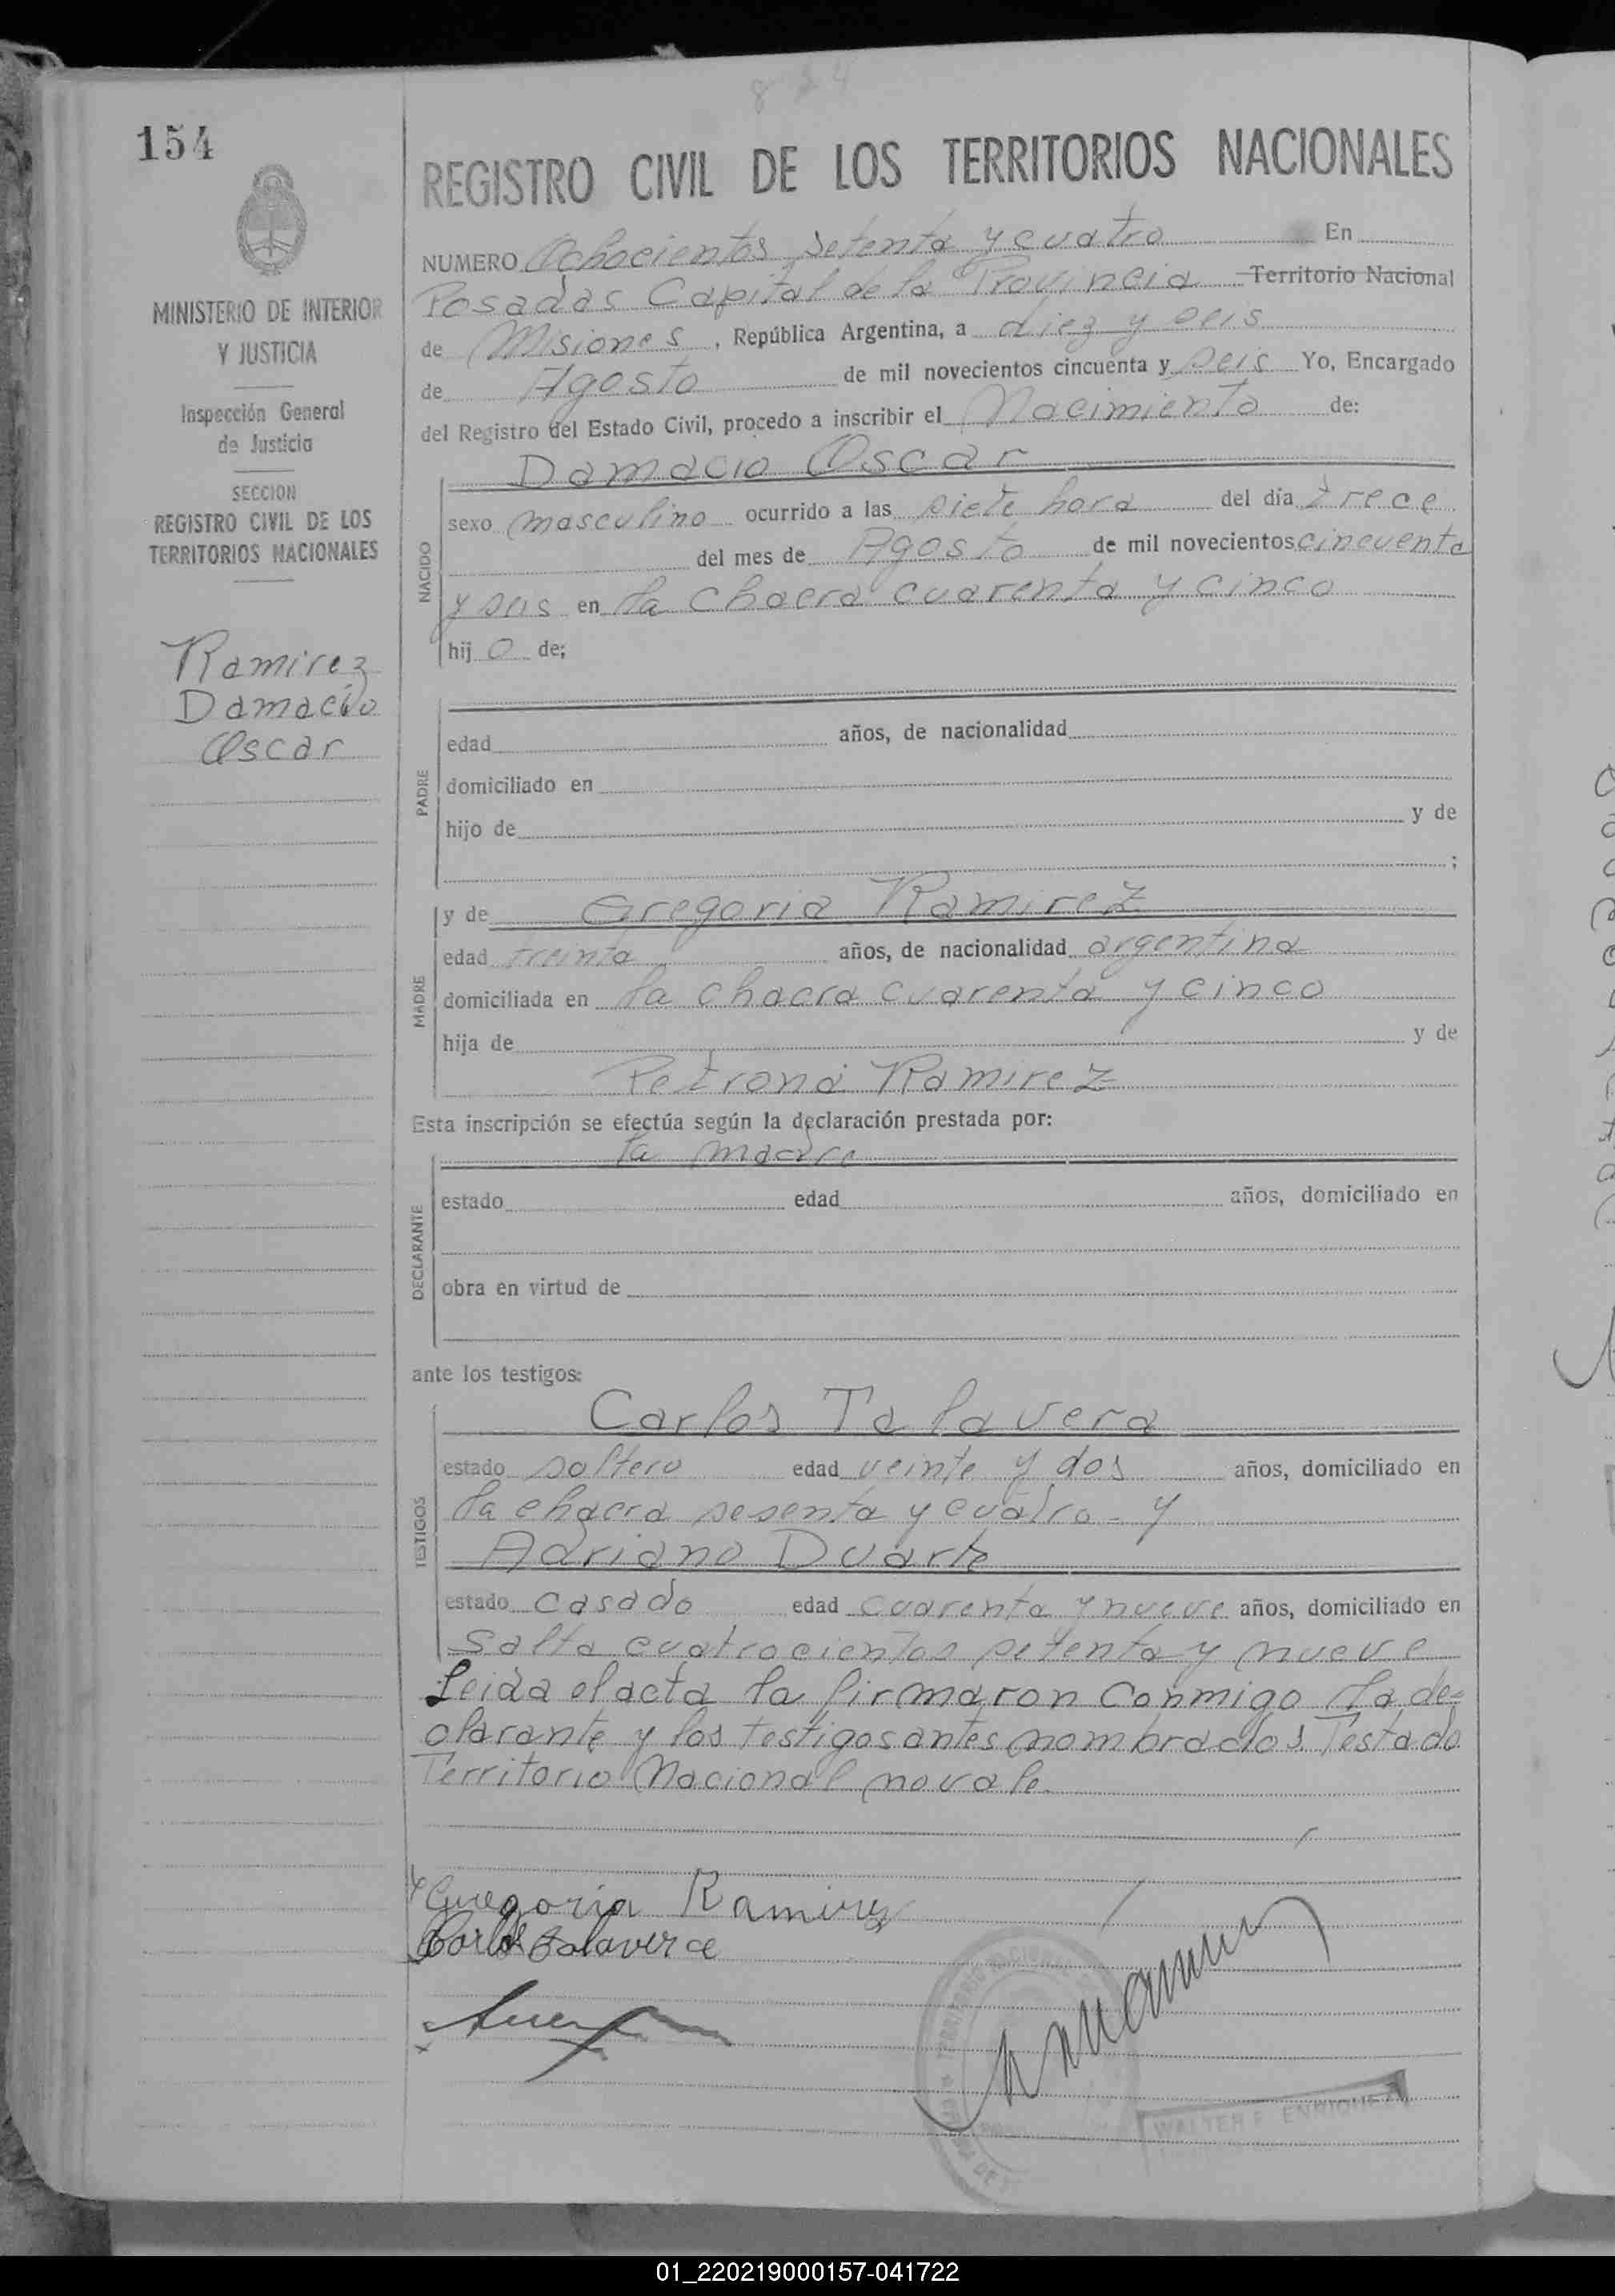 154
MINISTERIO DE INTERIOR
Y JUSTICIA
Inspección General
de Justicia
SECCION
REGISTRO CIVIL DE LOS
TERRITORIOS NACIONALES
Ramirez
Damacio
Oscar
REGISTRO CIVIL DE LOS TERRITORIOS NACIONALES
NUMERO Ochocientos setenta y cuatro En
Posadas Capital de la Provincia Territorio Nacional
de Misiones, República Argentina, a diez y seis
de Agosto de mil novecientos cincuenta y seis Yo, Encargado
del Registro del Estado Civil, procedo a inscribir el Nacimiento de:
NACIDO
Damacio Oscar
sexo masculino ocurrido a las siete hora del día trece
del mes de Agosto de mil novecientos cincuenta
y seis en la chacra cuarenta y cinco
hijo de;
PADRE
edad años, de nacionalidad
domiciliado en
hijo de y de
;
MADRE
y de Gregoria Ramirez
edad treinta años, de nacionalidad argentina
domiciliada en la chacra cuarenta y cinco
hija de y de
Petrona Ramirez
Esta inscripción se efectúa según la declaración prestada por:
DECLARANTE
la madre
estado edad años, domiciliado en
obra en virtud de
ante los testigos:
TESTIGOS
Carlos Talavera
estado soltero edad veinte y dos años, domiciliado en
la chacra sesenta y cuatro - y
Adriano Duarte
estado casado edad cuarenta y nueve años, domiciliado en
Salta cuatrocientos setenta y nueve
Leida el acta la firmaron conmigo la de=
clarante y los testigos antes nombrados. Testado
Territorio Nacional no vale.
Gregoria Ramirez
Carlos Talavera
WALTER F. ENRIQUEZ
01_220219000157-041722